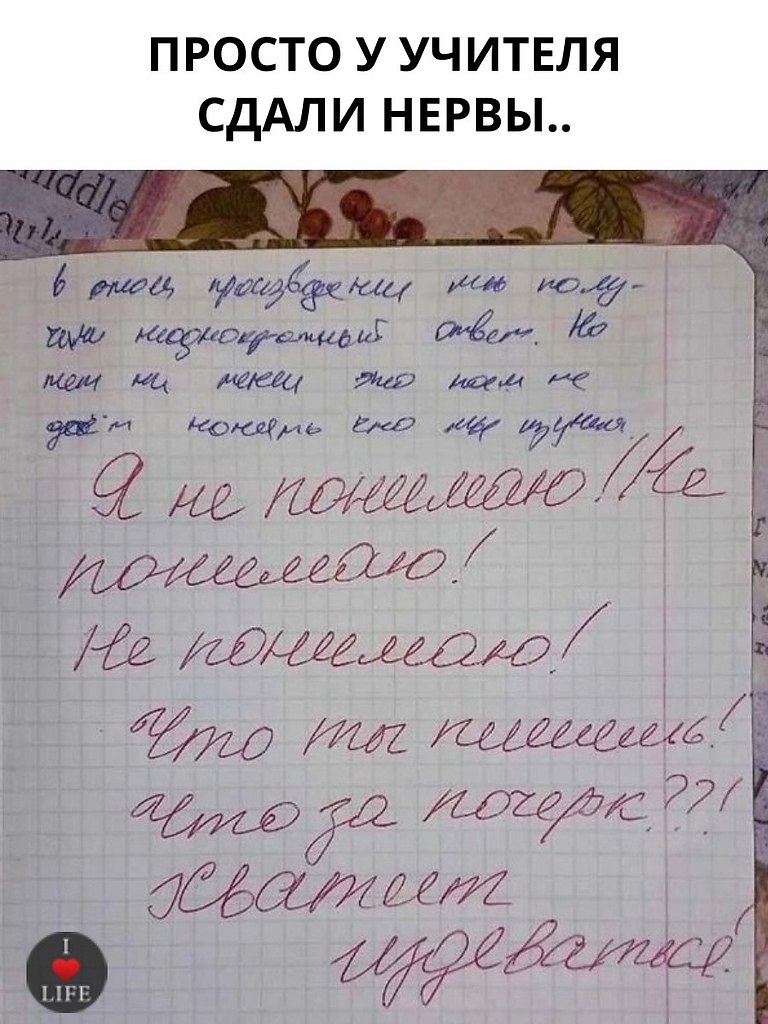 ПРОСТО У УЧИТЕЛЯ
СДАЛИ НЕРВЫ..
iddle
в этом произведении мы полу-
чили неоднократный ответ. Но
тем ни мении это нам не
даём понять что мы изучили.
Я не понимаю! Не
понимаю!
Не понимаю!
Что ты пишешь!
Что за почерк??!
Хватит
издеваться!
I
LIFE